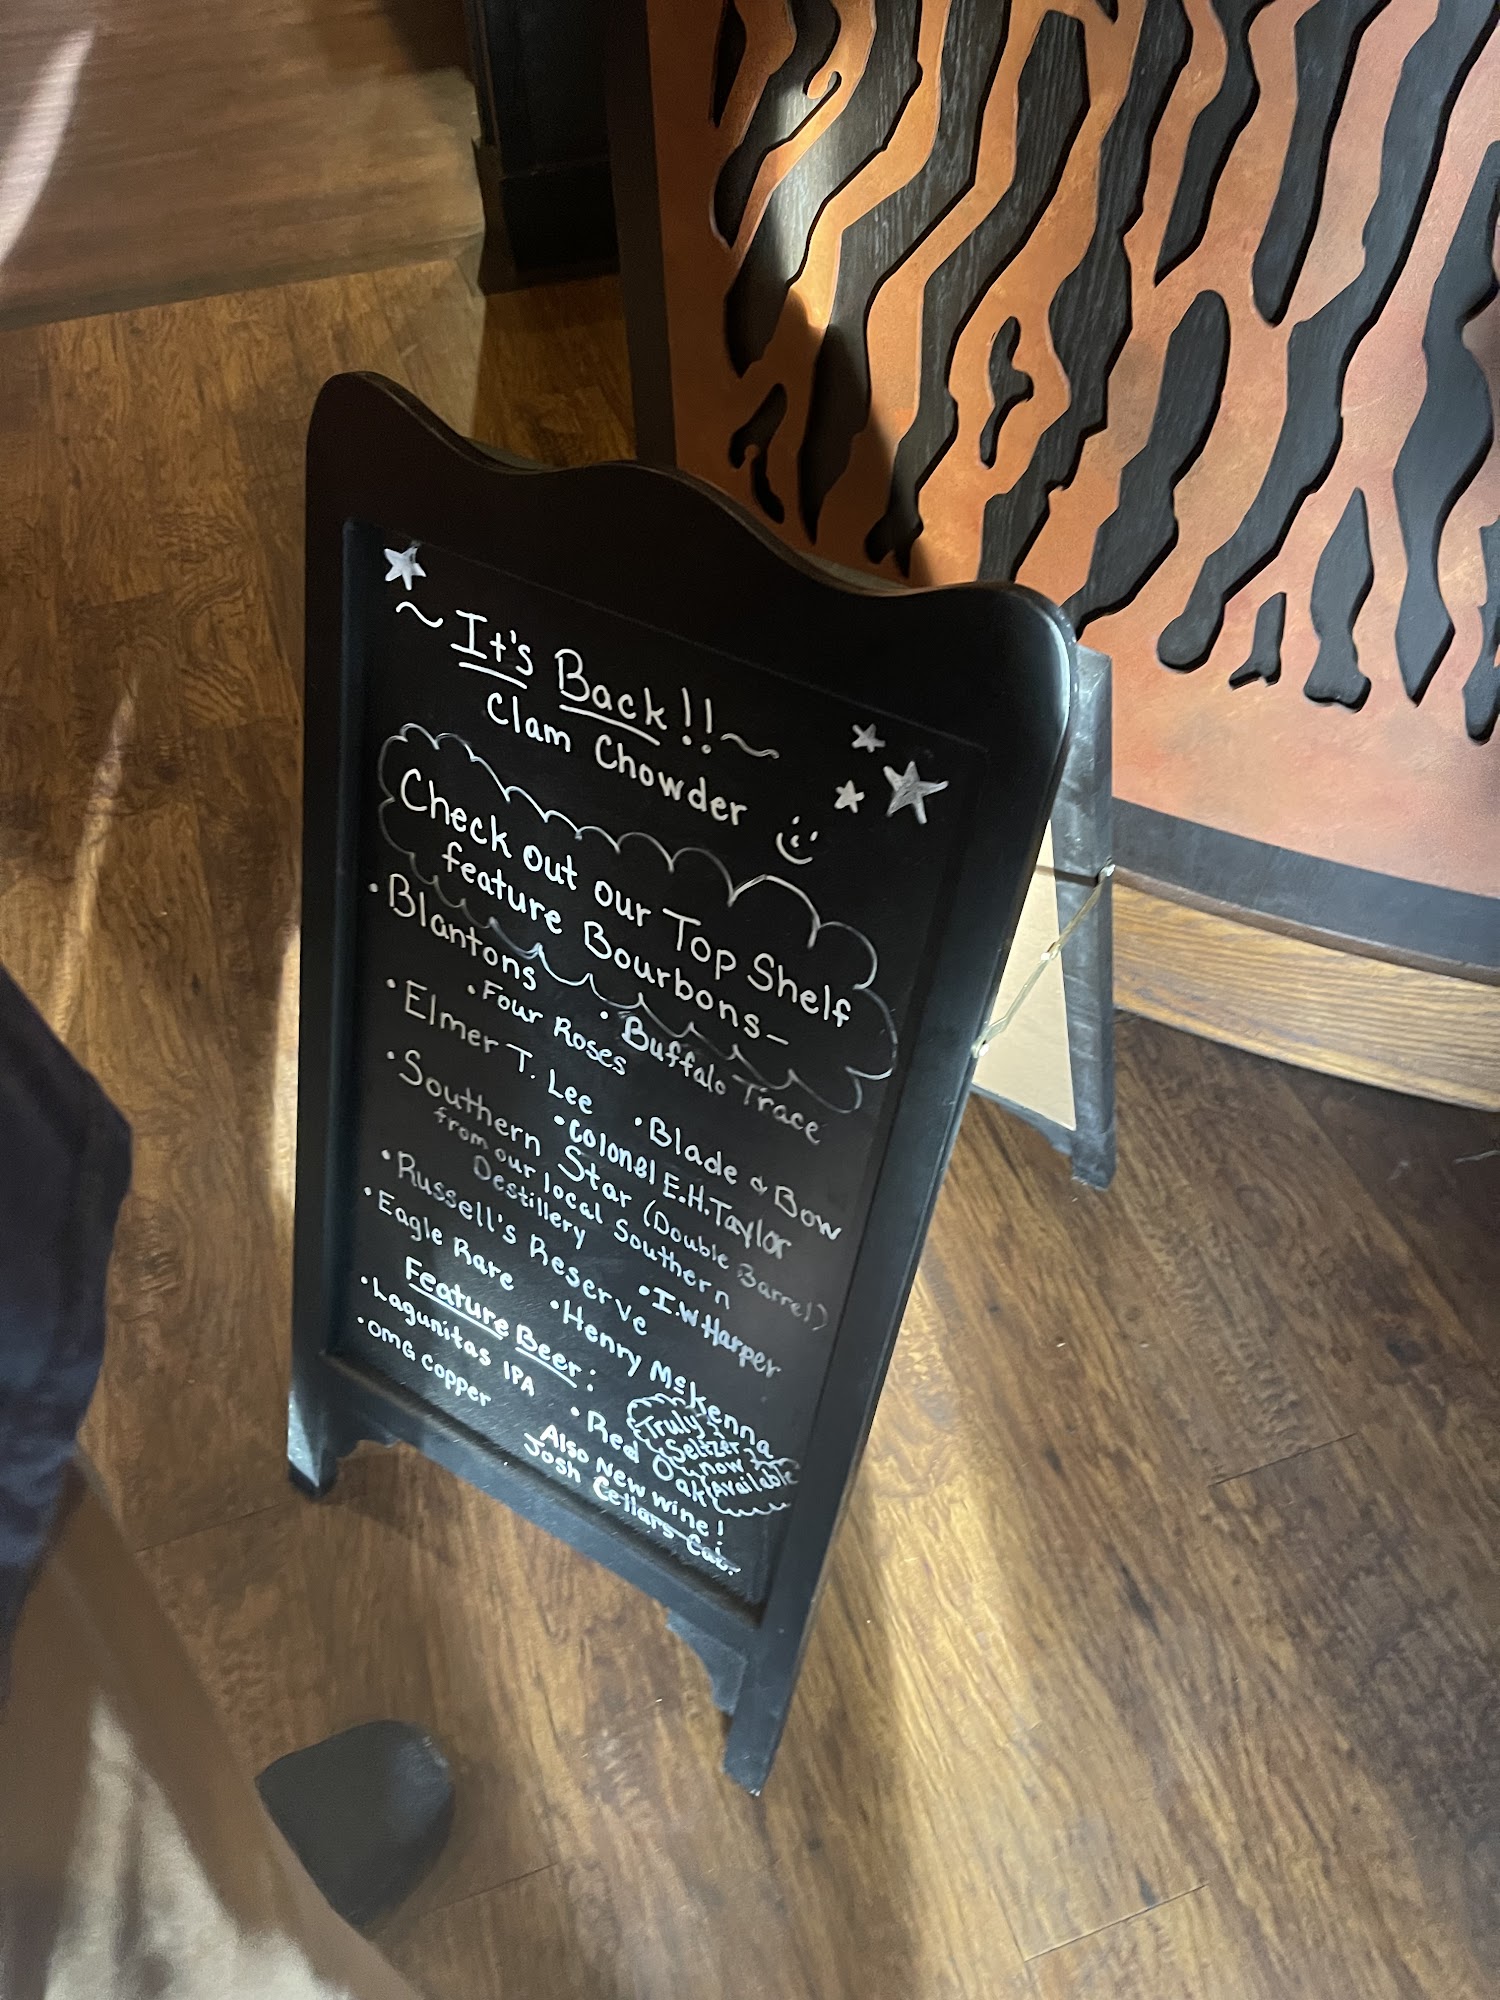 ~ It's Back!! ~
Clam Chowder
Check out our Top Shelf
feature Bourbons-
• Blantons
• Four Roses
• Buffalo Trace
• Elmer T. Lee
• Blade & Bow
• Colonel E.H. Taylor
• Southern Star (Double Barrel)
from our local Southern
Destillery
• Russell's Reserve
• I.W Harper
• Eagle Rare
• Henry McKenna
Feature Beer:
• Lagunitas IPA
• Red Oak
• OMG copper
Truly
Seltzer
now
Available
Also New wine!
Josh Cellars Cab.